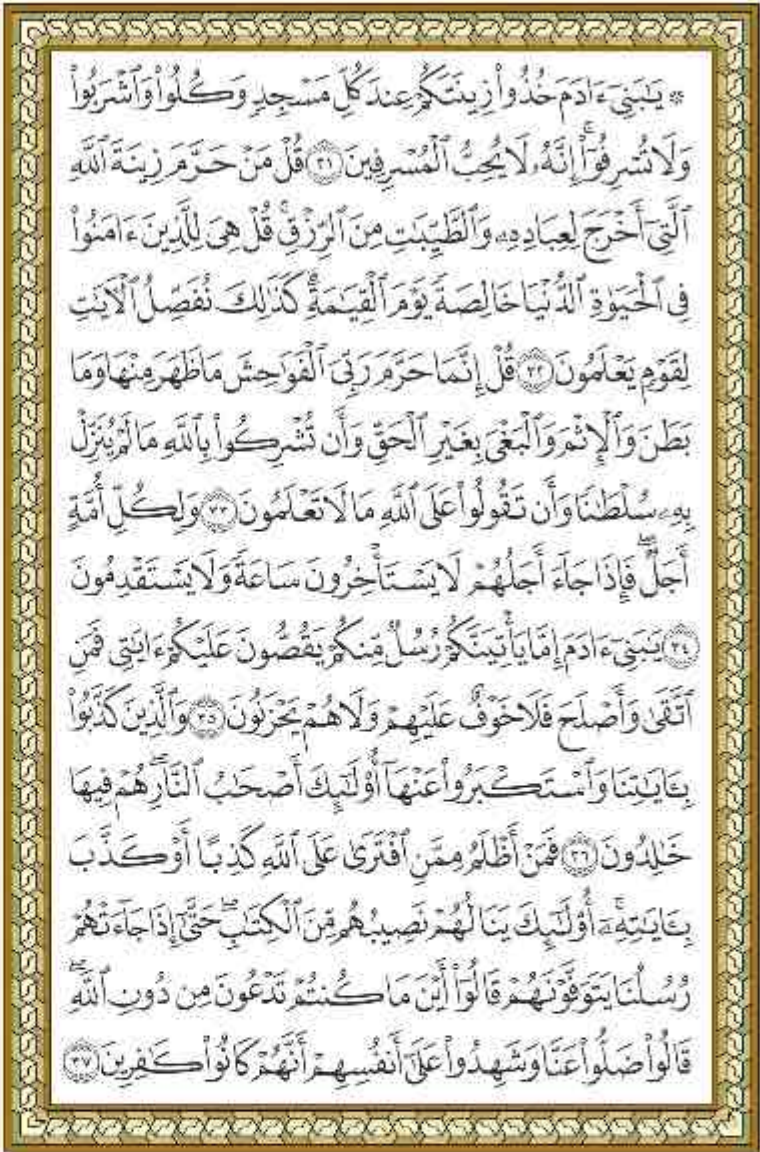 ۞ يَٰبَنِىٓ ءَادَمَ خُذُوا۟ زِينَتَكُمْ عِندَ كُلِّ مَسْجِدٍ وَكُلُوا۟ وَٱشْرَبُوا۟
وَلَا تُسْرِفُوٓا۟ ۚ إِنَّهُۥ لَا يُحِبُّ ٱلْمُسْرِفِينَ ٣١ قُلْ مَنْ حَرَّمَ زِينَةَ ٱللَّهِ
ٱلَّتِىٓ أَخْرَجَ لِعِبَادِهِۦ وَٱلطَّيِّبَٰتِ مِنَ ٱلرِّزْقِ ۚ قُلْ هِىَ لِلَّذِينَ ءَامَنُوا۟
فِى ٱلْحَيَوٰةِ ٱلدُّنْيَا خَالِصَةً يَوْمَ ٱلْقِيَٰمَةِ ۗ كَذَٰلِكَ نُفَصِّلُ ٱلْءَايَٰتِ
لِقَوْمٍ يَعْلَمُونَ ٣٢ قُلْ إِنَّمَا حَرَّمَ رَبِّىَ ٱلْفَوَٰحِشَ مَا ظَهَرَ مِنْهَا وَمَا
بَطَنَ وَٱلْإِثْمَ وَٱلْبَغْىَ بِغَيْرِ ٱلْحَقِّ وَأَن تُشْرِكُوا۟ بِٱللَّهِ مَا لَمْ يُنَزِّلْ
بِهِۦ سُلْطَٰنًا وَأَن تَقُولُوا۟ عَلَى ٱللَّهِ مَا لَا تَعْلَمُونَ ٣٣ وَلِكُلِّ أُمَّةٍ
أَجَلٌ ۖ فَإِذَا جَآءَ أَجَلُهُمْ لَا يَسْتَأْخِرُونَ سَاعَةً ۖ وَلَا يَسْتَقْدِمُونَ
٣٤ يَٰبَنِىٓ ءَادَمَ إِمَّا يَأْتِيَنَّكُمْ رُسُلٌ مِّنكُمْ يَقُصُّونَ عَلَيْكُمْ ءَايَٰتِى فَمَنِ
ٱتَّقَىٰ وَأَصْلَحَ فَلَا خَوْفٌ عَلَيْهِمْ وَلَا هُمْ يَحْزَنُونَ ٣٥ وَٱلَّذِينَ كَذَّبُوا۟
بِـَٔايَٰتِنَا وَٱسْتَكْبَرُوا۟ عَنْهَآ أُو۟لَٰٓئِكَ أَصْحَٰبُ ٱلنَّارِ ۖ هُمْ فِيهَا
خَٰلِدُونَ ٣٦ فَمَنْ أَظْلَمُ مِمَّنِ ٱفْتَرَىٰ عَلَى ٱللَّهِ كَذِبًا أَوْ كَذَّبَ
بِـَٔايَٰتِهِۦٓ ۚ أُو۟لَٰٓئِكَ يَنَالُهُمْ نَصِيبُهُم مِّنَ ٱلْكِتَٰبِ ۖ حَتَّىٰٓ إِذَا جَآءَتْهُمْ
رُسُلُنَا يَتَوَفَّوْنَهُمْ قَالُوٓا۟ أَيْنَ مَا كُنتُمْ تَدْعُونَ مِن دُونِ ٱللَّهِ ۖ
قَالُوا۟ ضَلُّوا۟ عَنَّا وَشَهِدُوا۟ عَلَىٰٓ أَنفُسِهِمْ أَنَّهُمْ كَانُوا۟ كَٰفِرِينَ ٣٧